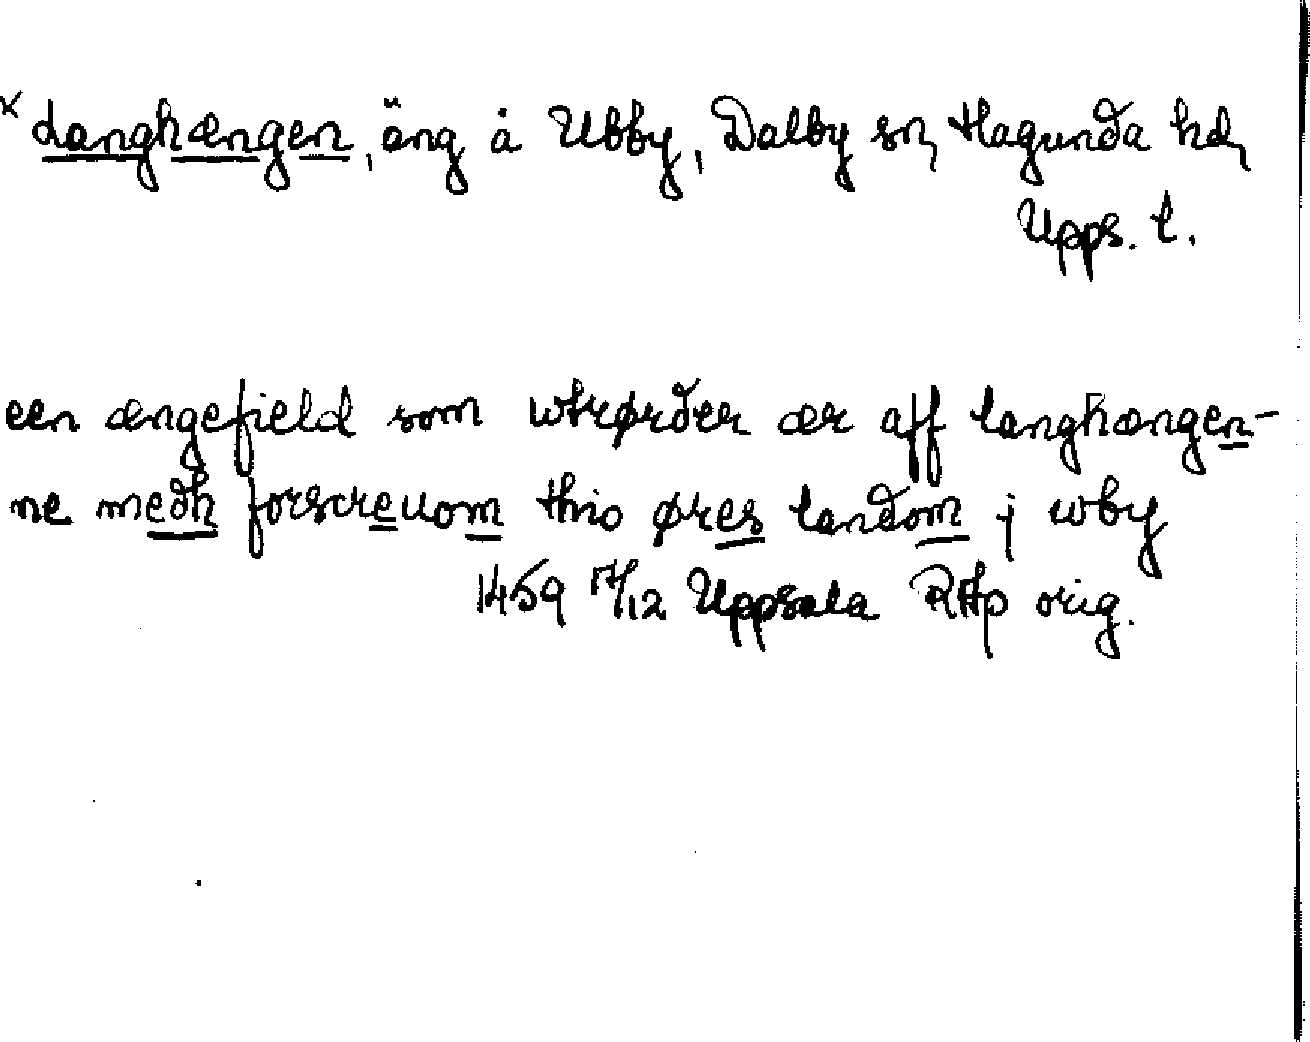 × Langhængen, äng å Ubby, Dalby sn, Hagunda hd,
Upps. l.
een ængefield som wtrørder ær aff langhængen-
ne medh forscreuom thio øres landom j wby
1459 17/12 Uppsala RAp orig.